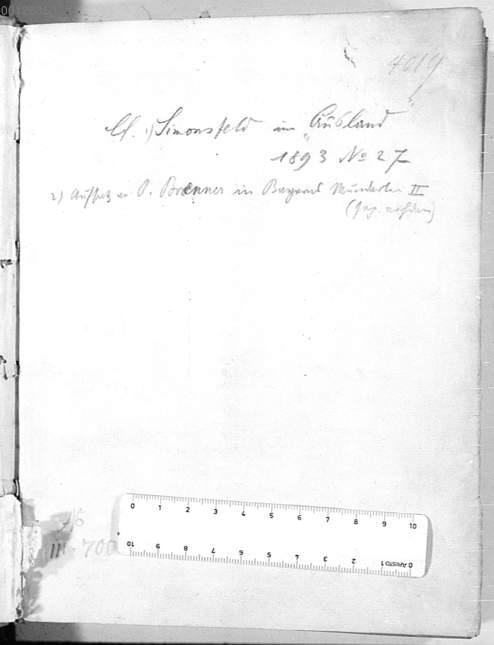 4019
Cf. 1) Simonsfeld im "Ausland"
1893 No 27
2) Aufsatz v. O. Brenner in Bayerns Mundarten II
III. 700
0 1 2 3 4 5 6 7 8 9 10
10 9 8 7 6 5 4 3 2 1 0 ARISTO